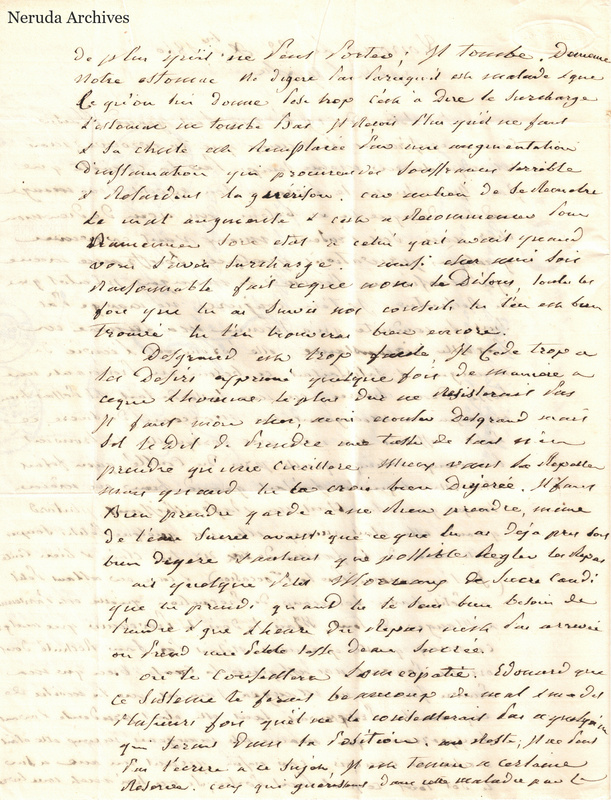 Neruda Archives
de plus qu'il ne peut porter, il tombe. De meme
notre estomac ne digere pas parcequil est malade & que
ce qu'on lui donne pese trop c'est a dire le surcharge
L'estomac ne tombe pas il recoit plus qu'il ne faut
& sa chute est remplacée par une augmentation
d'inflamation qui procure des souffrances terrible
& retardent la guérison. car au lieu de se remetre
le mal augmente & c'est a recommencer pour
ramener son etat a celui qu'il avait quand
vous l'avez surchargé. ainsi cher ami sois
raisonnable fait ceque nous te disons, toutes les
fois que tu as suivis nos conseils tu t'en est bien
trouvé tu t'en trouveras bien encore.
Desgrand est trop facile, il cede trop a
tes desirs exprimé quelque fois de maniere a
ceque l'homme le plus dur ne resisterait pas
Il faut mon cher ami ecouter Desgrand mais
s'il te dit de prendre une tasse de lait n'en
prendre qu'une cuillere mieux vaut la repeter
mais quand tu la crois bien digerée. Il faut
bien prendre garde a ne rien prendre, même
de l'eau sucrée avant que ce que tu as deja pris soit
bien digere & autant que possible regler les repas
ait quelque petit morceaux de sucre candi
que tu prends quand tu te sens bien besoin de
prendre & que l'heure du repas n'est pas arrivée
ou prend une petite tasse d'eau sucrée.
on te conseillera Edouard que
ce sisteme te ferait beaucoup de mal & m'a dit
plusieurs fois qu'il ne le conseillerait pas a quelqu'un
qui serait dans ta position. au reste, il ne peut
pas t'écrire a ce sujet, il est tenu a certaine
reserve. ceux qui guérissent dans cette maladie par